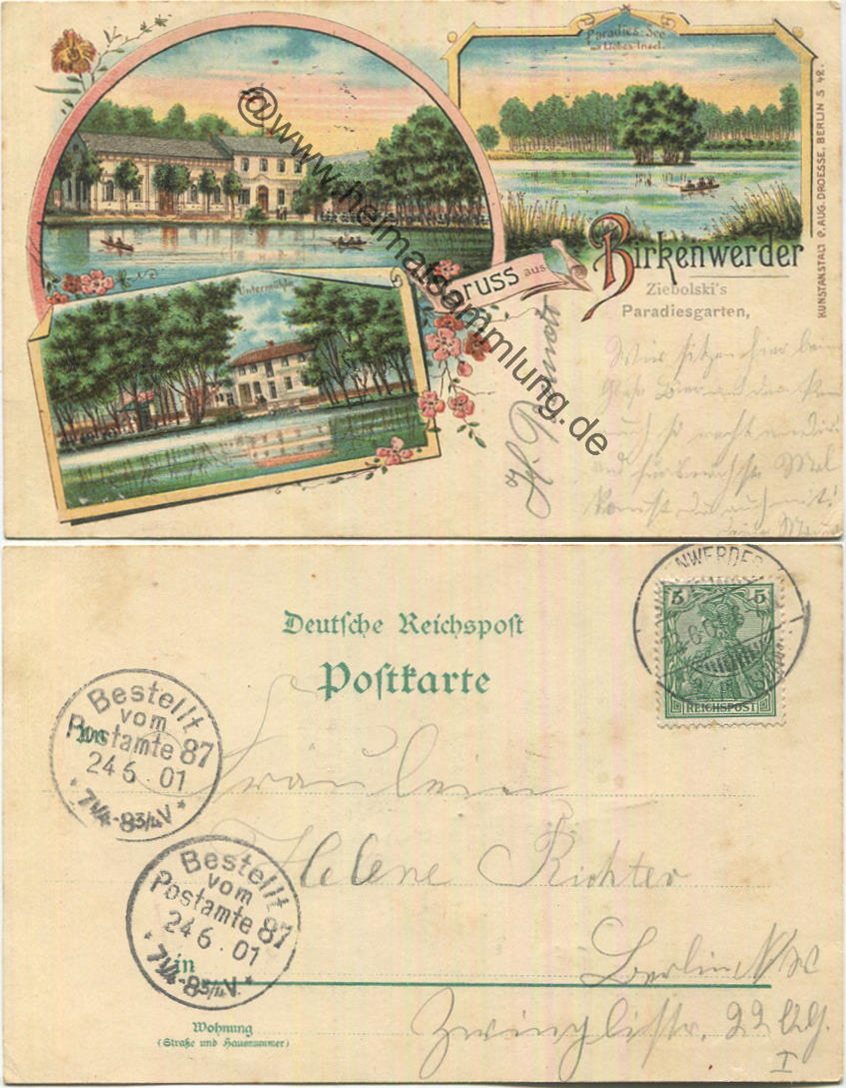 Paradies-See
m. Liebes-Insel.
Untermühle
Gruss aus
Birkenwerder
Ziebolski's
Paradiesgarten,
KUNSTANSTALT C. AUG. DROESSE, BERLIN S 42.
@www.heimatsammlung.de
Wir sitzen hier beim
Glase Bier
auch so recht
Deutsche Reichspost
Postkarte
5 5
REICHSPOST
Bestellt
vom
Postamte 87
24 6. 01
* 7¼-8¾V. *
Bestellt
vom
Postamte 87
24 6. 01
* 7¼-8¾V. *
Fräulein
Helene Richter
in
Berlin NW
Zwinglistr. 22
I
Wohnung
(Straße und Hausnummer)